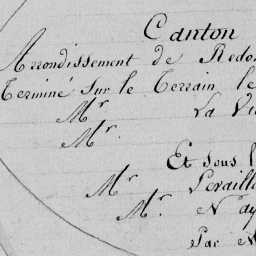 Canton
Arrondissement de Redon
Terminé sur le Terrain le
Mr. La Vi
Mr.
Et sous l
Mr Levaill
Mr. N ay
Par N